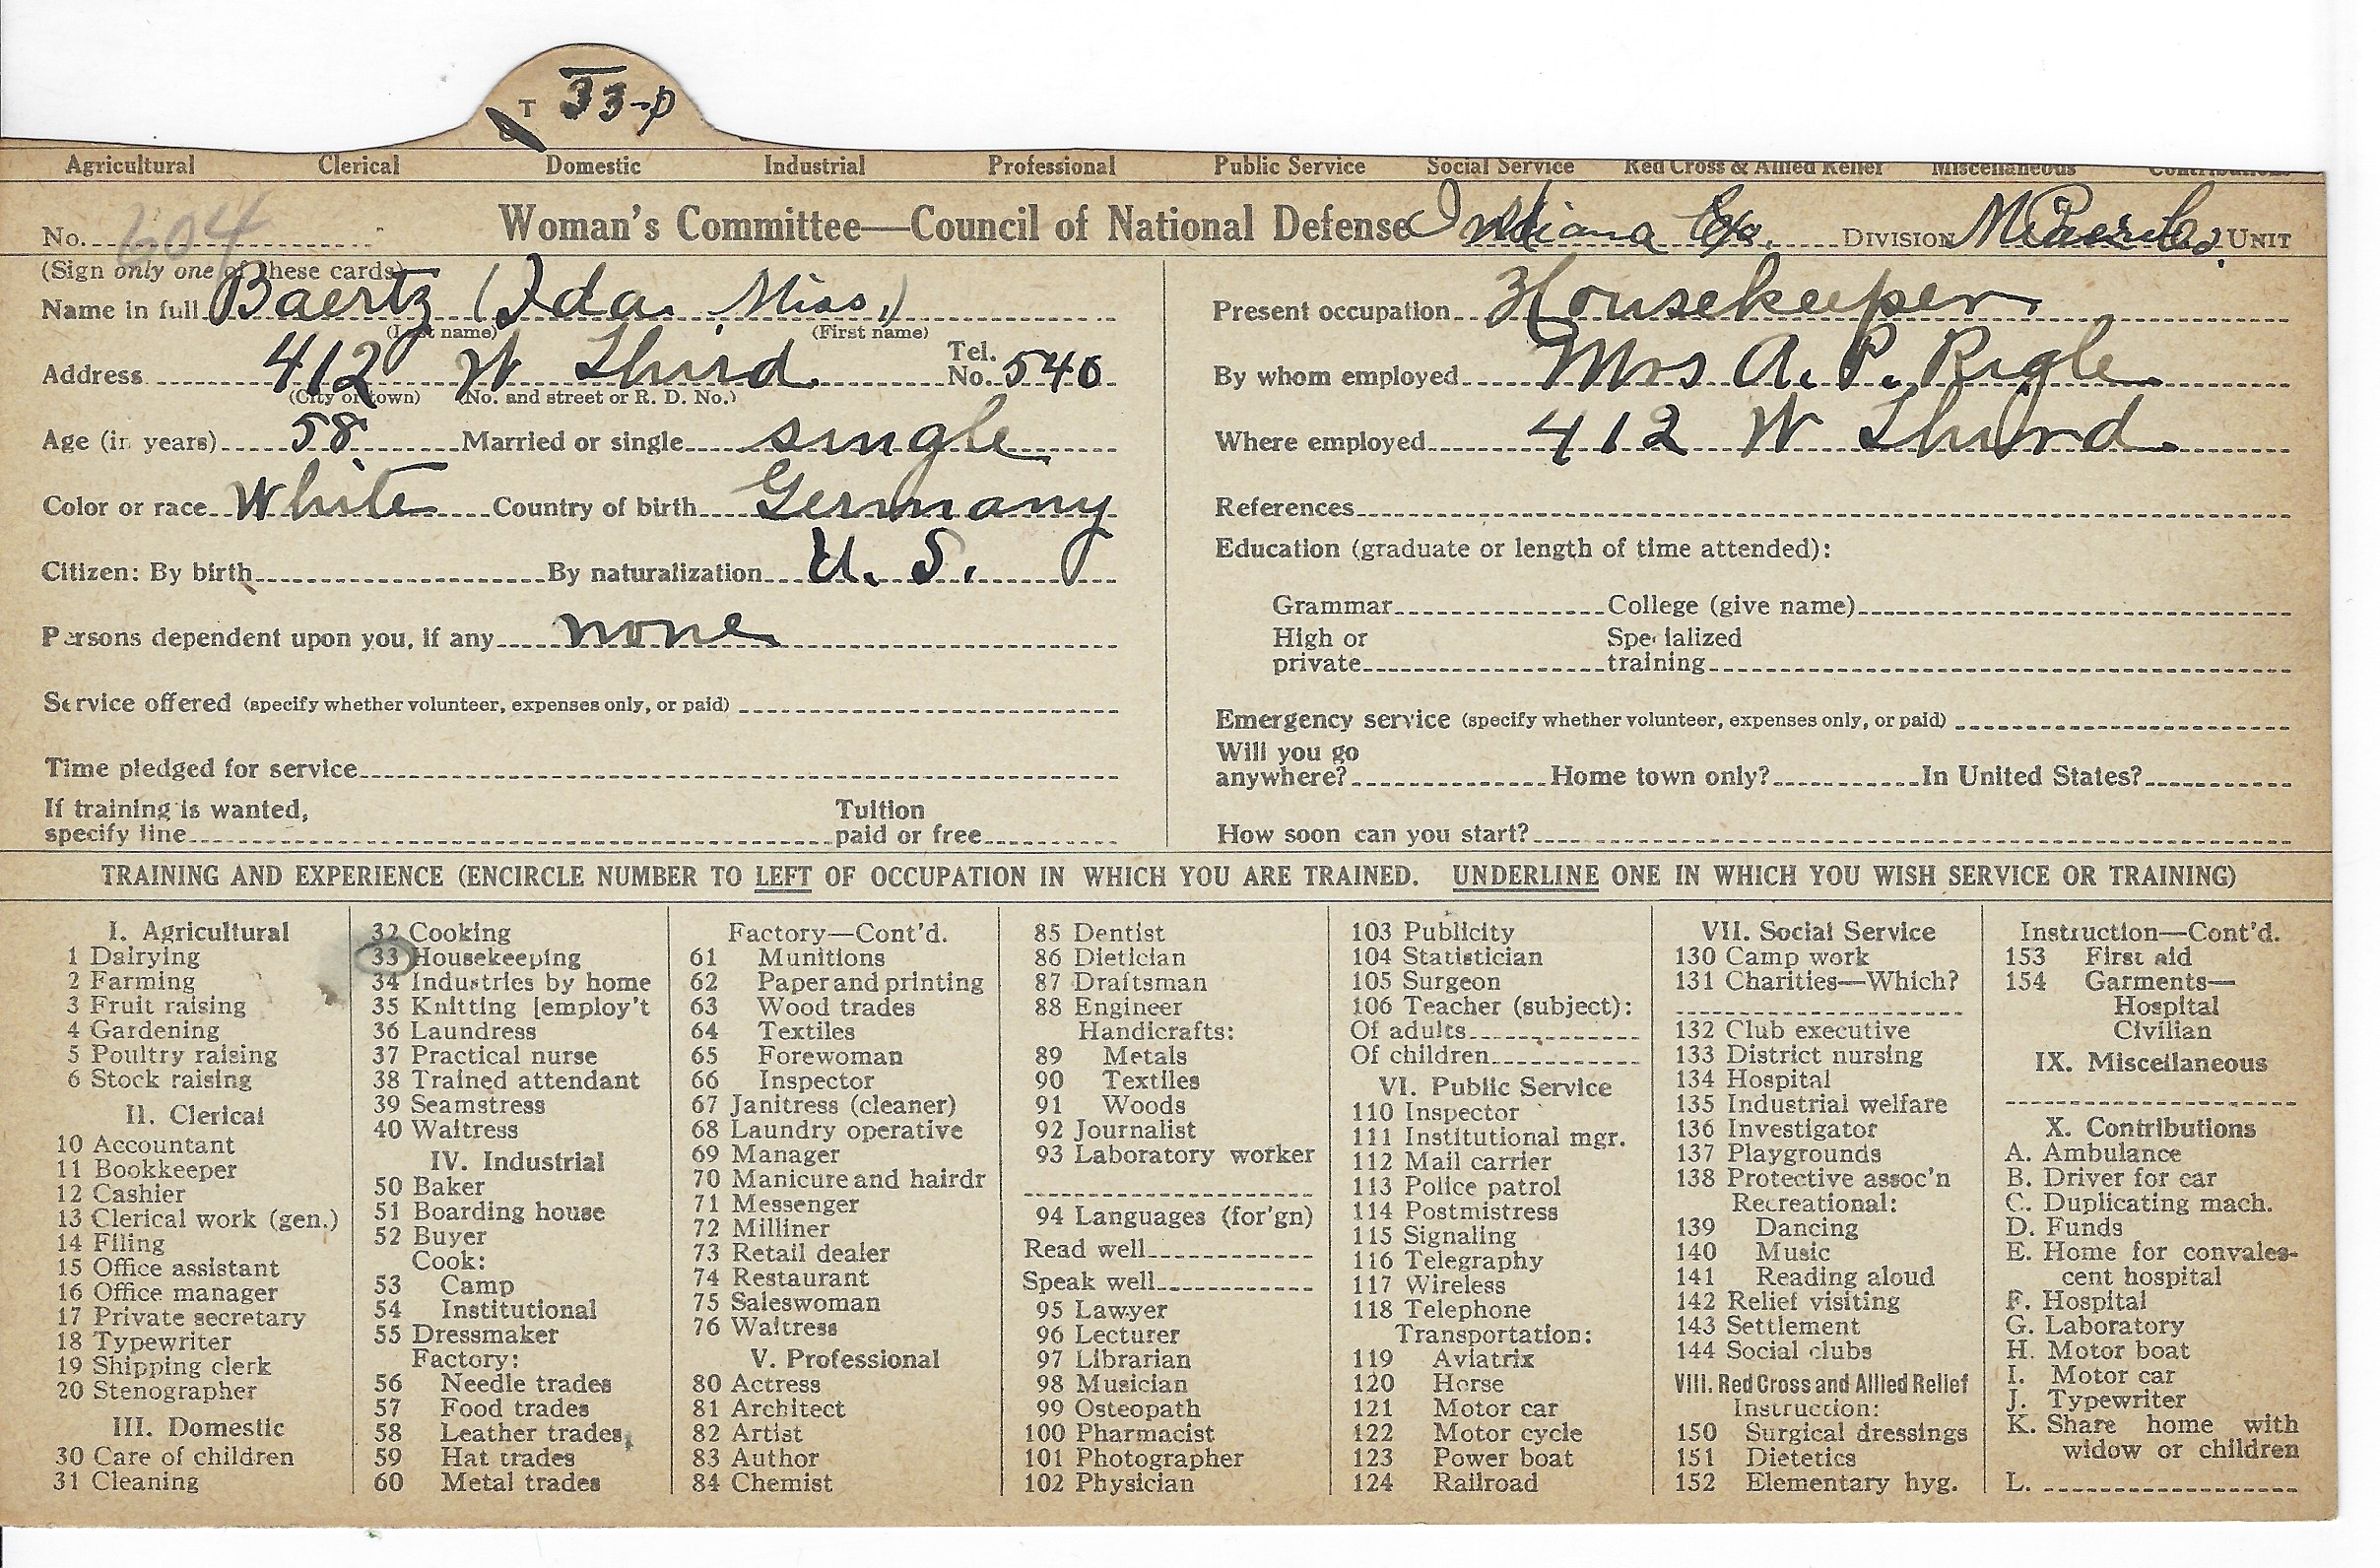 T 33-P
Agricultural Clerical Domestic Industrial Professional Public Service Social Service Red Cross & Allied Relief Miscellaneous Contributions
No. 604 Woman's Committee—Council of National Defense Indiana DIVISION UNIT
(Sign only one of these cards)
Name in full Baertz (Ida. Miss,)
(Last name) (First name)
Address 412 W Third Tel. No. 540
(City or town) (No. and street or R. D. No.)
Age (in years) 58 Married or single single
Color or race White Country of birth Germany
Citizen: By birth By naturalization U. S.
Persons dependent upon you, if any none
Service offered (specify whether volunteer, expenses only, or paid)
Time pledged for service
If training is wanted,
specify line
Tuition
paid or free
Present occupation Housekeeper
By whom employed Mrs A. P. Rigle
Where employed 412 W Third
References
Education (graduate or length of time attended):
Grammar College (give name)
High or
private
Specialized
training
Emergency service (specify whether volunteer, expenses only, or paid)
Will you go
anywhere? Home town only? In United States?
How soon can you start?
TRAINING AND EXPERIENCE (ENCIRCLE NUMBER TO LEFT OF OCCUPATION IN WHICH YOU ARE TRAINED. UNDERLINE ONE IN WHICH YOU WISH SERVICE OR TRAINING)
I. Agricultural
1 Dairying
2 Farming
3 Fruit raising
4 Gardening
5 Poultry raising
6 Stock raising
II. Clerical
10 Accountant
11 Bookkeeper
12 Cashier
13 Clerical work (gen.)
14 Filing
15 Office assistant
16 Office manager
17 Private secretary
18 Typewriter
19 Shipping clerk
20 Stenographer
III. Domestic
30 Care of children
31 Cleaning
32 Cooking
33 Housekeeping
34 Industries by home
35 Knitting [employ't
36 Laundress
37 Practical nurse
38 Trained attendant
39 Seamstress
40 Waitress
IV. Industrial
50 Baker
51 Boarding house
52 Buyer
Cook:
53 Camp
54 Institutional
55 Dressmaker
Factory:
56 Needle trades
57 Food trades
58 Leather trades
59 Hat trades
60 Metal trades
Factory—Cont'd.
61 Munitions
62 Paper and printing
63 Wood trades
64 Textiles
65 Forewoman
66 Inspector
67 Janitress (cleaner)
68 Laundry operative
69 Manager
70 Manicure and hairdr
71 Messenger
72 Milliner
73 Retail dealer
74 Restaurant
75 Saleswoman
76 Waitress
V. Professional
80 Actress
81 Architect
82 Artist
83 Author
84 Chemist
85 Dentist
86 Dietician
87 Draftsman
88 Engineer
Handicrafts:
89 Metals
90 Textiles
91 Woods
92 Journalist
93 Laboratory worker
94 Languages (for'gn)
Read well
Speak well
95 Lawyer
96 Lecturer
97 Librarian
98 Musician
99 Osteopath
100 Pharmacist
101 Photographer
102 Physician
103 Publicity
104 Statistician
105 Surgeon
106 Teacher (subject):
Of adults
Of children
VI. Public Service
110 Inspector
111 Institutional mgr.
112 Mail carrier
113 Police patrol
114 Postmistress
115 Signaling
116 Telegraphy
117 Wireless
118 Telephone
Transportation:
119 Aviatrix
120 Horse
121 Motor car
122 Motor cycle
123 Power boat
124 Railroad
VII. Social Service
130 Camp work
131 Charities—Which?
132 Club executive
133 District nursing
134 Hospital
135 Industrial welfare
136 Investigator
137 Playgrounds
138 Protective assoc'n
Recreational:
139 Dancing
140 Music
141 Reading aloud
142 Relief visiting
143 Settlement
144 Social clubs
VIII. Red Cross and Allied Relief
Instruction:
150 Surgical dressings
151 Dietetics
152 Elementary hyg.
Instruction—Cont'd.
153 First aid
154 Garments—
Hospital
Civilian
IX. Miscellaneous
X. Contributions
A. Ambulance
B. Driver for car
C. Duplicating mach.
D. Funds
E. Home for convales-
cent hospital
F. Hospital
G. Laboratory
H. Motor boat
I. Motor car
J. Typewriter
K. Share home with
widow or children
L.